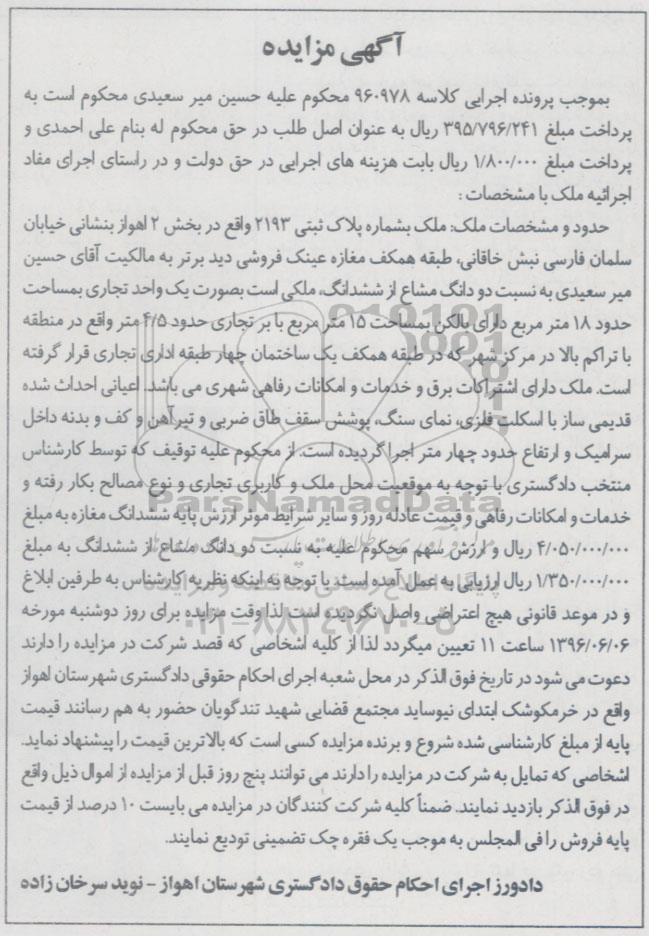 آگهی مزایده
بموجب پرونده اجرایی کلاسه ۹۶۰۹۷۸ محکوم علیه حسین میر سعیدی محکوم است به
پرداخت مبلغ ۳۹۵/۷۹۶/۲۴۱ ریال به عنوان اصل طلب در حق محکوم له بنام علی احمدی و
پرداخت مبلغ ۱/۸۰۰/۰۰۰ ریال بابت هزینه های اجرایی در حق دولت و در راستای اجرای مفاد
اجرائیه ملک با مشخصات :
حدود و مشخصات ملک: ملک بشماره پلاک ثبتی ۲۱۹۳ واقع در بخش ۲ اهواز بنشانی خیابان
سلمان فارسی نبش خاقانی، طبقه همکف مغازه عینک فروشی دید برتر به مالکیت آقای حسین
میر سعیدی به نسبت دو دانگ مشاع از ششدانگ، ملکی است بصورت یک واحد تجاری بمساحت
حدود ۱۸ متر مربع دارای بالکن بمساحت ۱۵ متر مربع با بر تجاری حدود ۴/۵ متر واقع در منطقه
با تراکم بالا در مرکز شهر که در طبقه همکف یک ساختمان چهار طبقه اداری تجاری قرار گرفته
است. ملک دارای اشتراکات برق و خدمات و امکانات رفاهی شهری می باشد. اعیانی احداث شده
قدیمی ساز با اسکلت فلزی، نمای سنگ، پوشش سقف طاق ضربی و تیرآهن و کف و بدنه داخل
سرامیک و ارتفاع حدود چهار متر اجرا گردیده است. از محکوم علیه توقیف که توسط کارشناس
منتخب دادگستری با توجه به موقعیت محل ملک و کاربری تجاری و نوع مصالح بکار رفته و
خدمات و امکانات رفاهی و قیمت عادله روز و سایر شرایط موثر ارزش پایه ششدانگ مغازه به مبلغ
۴/۰۵۰/۰۰۰/۰۰۰ ریال و ارزش سهم محکوم علیه به نسبت دو دانگ مشاع از ششدانگ به مبلغ
۱/۳۵۰/۰۰۰/۰۰۰ ریال ارزیابی به عمل آمده است. با توجه به اینکه نظریه کارشناس به طرفین ابلاغ
و در موعد قانونی هیچ اعتراضی واصل نگردیده است لذا وقت مزایده برای روز دوشنبه مورخه
۱۳۹۶/۰۶/۰۶ ساعت ۱۱ تعیین میگردد لذا از کلیه اشخاصی که قصد شرکت در مزایده را دارند
دعوت می شود در تاریخ فوق الذکر در محل شعبه اجرای احکام حقوقی دادگستری شهرستان اهواز
واقع در خرمکوشک ابتدای نیوساید مجتمع قضایی شهید تندگویان حضور به هم رسانند قیمت
پایه از مبلغ کارشناسی شده شروع و برنده مزایده کسی است که بالاترین قیمت را پیشنهاد نماید.
اشخاصی که تمایل به شرکت در مزایده را دارند می توانند پنج روز قبل از مزایده از اموال ذیل واقع
در فوق الذکر بازدید نمایند. ضمناً کلیه شرکت کنندگان در مزایده می بایست ۱۰ درصد از قیمت
پایه فروش را فی المجلس به موجب یک فقره چک تضمینی تودیع نمایند.
دادورز اجرای احکام حقوق دادگستری شهرستان اهواز - نوید سرخان زاده
ParsNamadData
۰۲۱-۸۸۳۴۹۶۷۰-۵